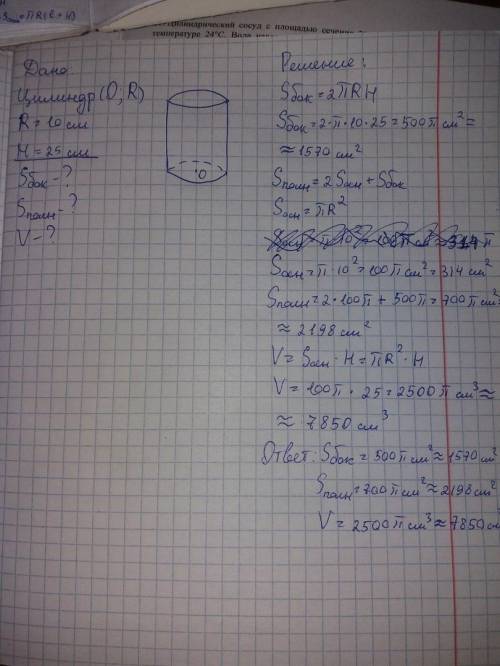 цилиндрический сосуд с площадью сечения
температуре 24°С. Вода
= πR(l+R)
Дано
Цилиндр (О; R)
R = 10 см
H = 25 см
Sбок - ?
Sполн - ?
V - ?
O
Решение:
Sбок = 2πRH
Sбок = 2·π·10·25 = 500π см² =
≈ 1570 см²
Sполн = 2Sосн + Sбок
Sосн = πR²
Sосн = π·10² = 100π см² = 314 см²
Sполн = 2·100π + 500π = 700π см²
≈ 2198 см²
V = Sосн · H = πR² · H
V = 100π · 25 = 2500π см³ ≈
≈ 7850 см³
Ответ: Sбок = 500π см² ≈ 1570 см²
Sполн = 700π см² ≈ 2198 см²
V = 2500π см³ ≈ 7850 см